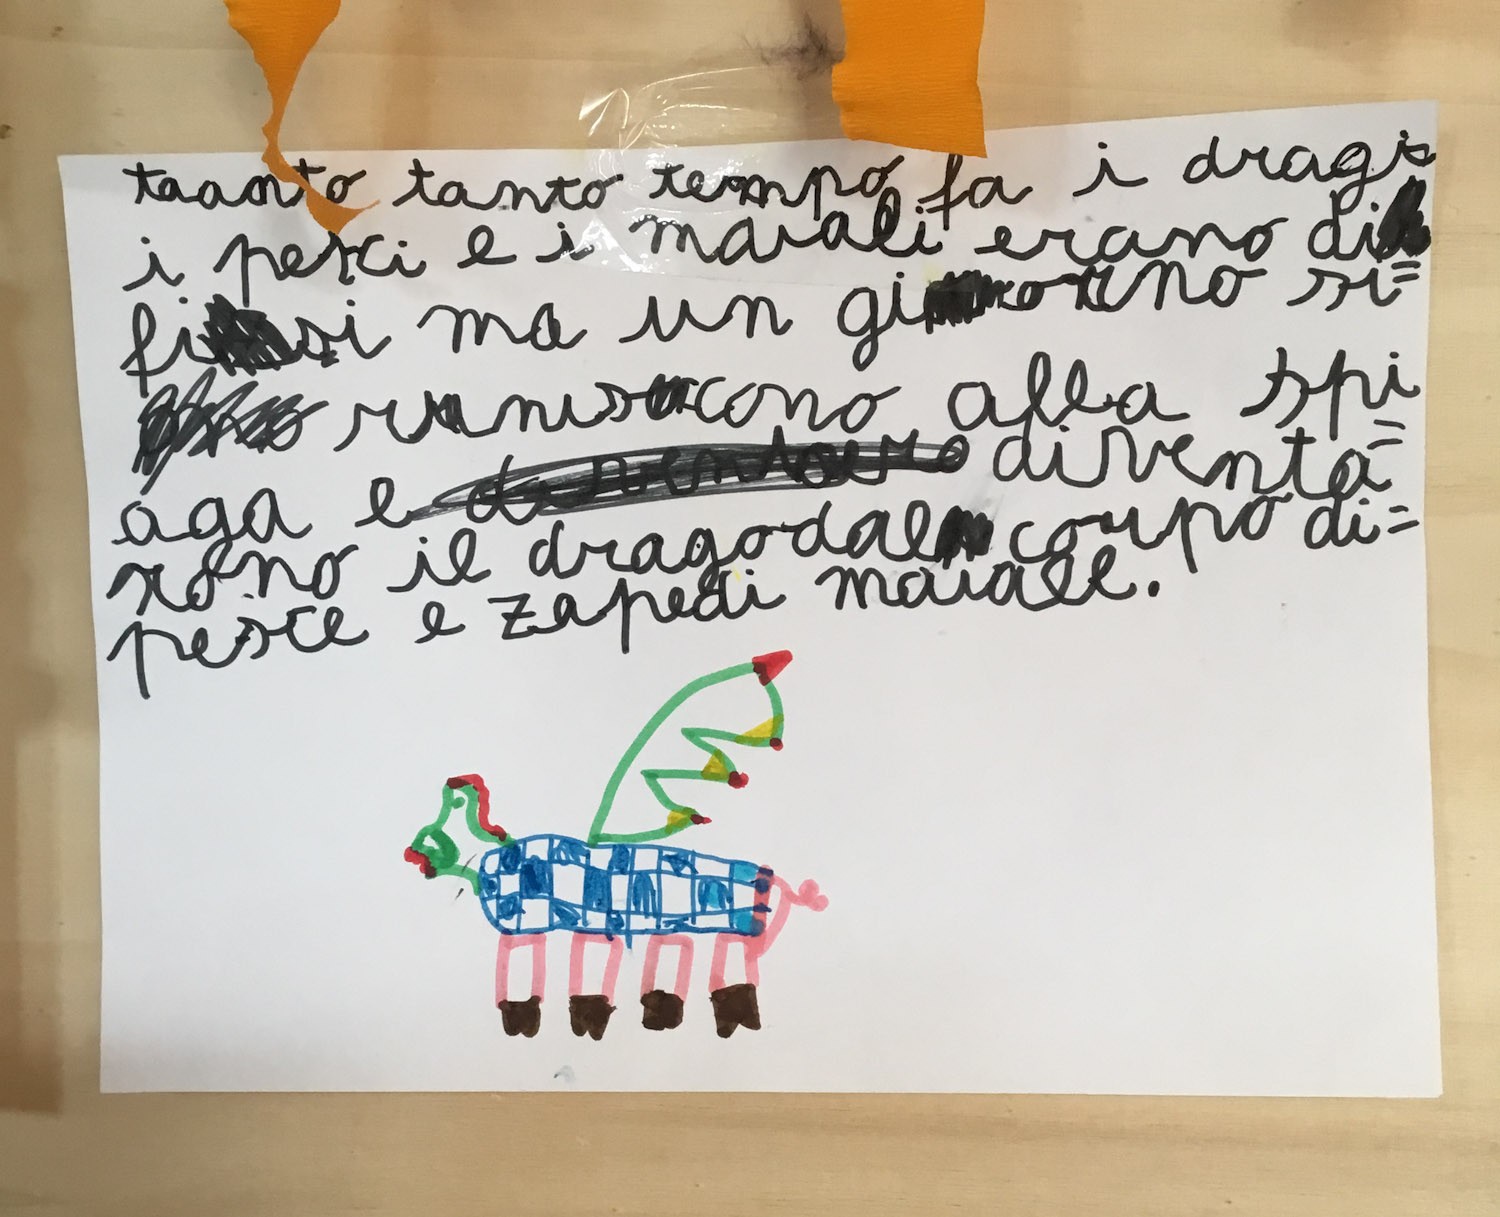 taanto tanto tempo fa i dragi
i pesci e i maiali erano di
fisi ma un giorno si=
runiscono alla spi=
aga e diventa=
rono il drago dal corpo di=
pesce e zape di maiale.